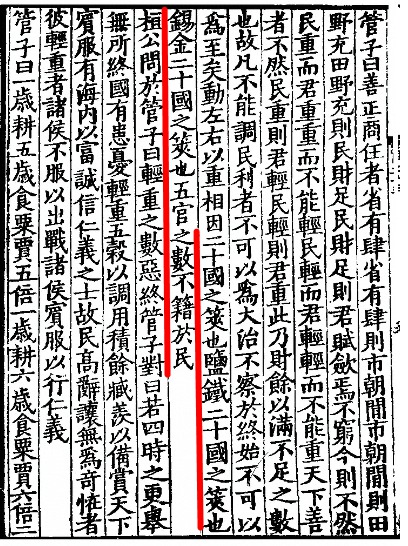 管子曰善正商任者省有肆省有肆則市朝閒市朝閒則田
野充田野充則民財足民財足則君賦歛焉不窮今則不然
民重而君重重而不能輕民輕而君輕輕而不能重天下善
者不然民重則君輕民輕則君重此乃財餘以滿不足之數
也故凡不能調民利者不可以爲大治不察於終始不可以
爲至矣動左右以重相因二十國之筴也鹽鐵二十國之筴也
錫金二十國之筴也五官之數不籍於民
桓公問於管子曰輕重之數惡終管子對曰若四時之更舉
無所終國有患憂輕重五穀以調用積餘臧羨以備賞天下
賓服有海內以富誠信仁義之士故民高辭讓無爲奇怪者
彼輕重者諸侯不服以出戰諸侯賓服以行仁義
管子曰一歲耕五歲食粟賈五倍一歲耕六歲食粟賈六倍二